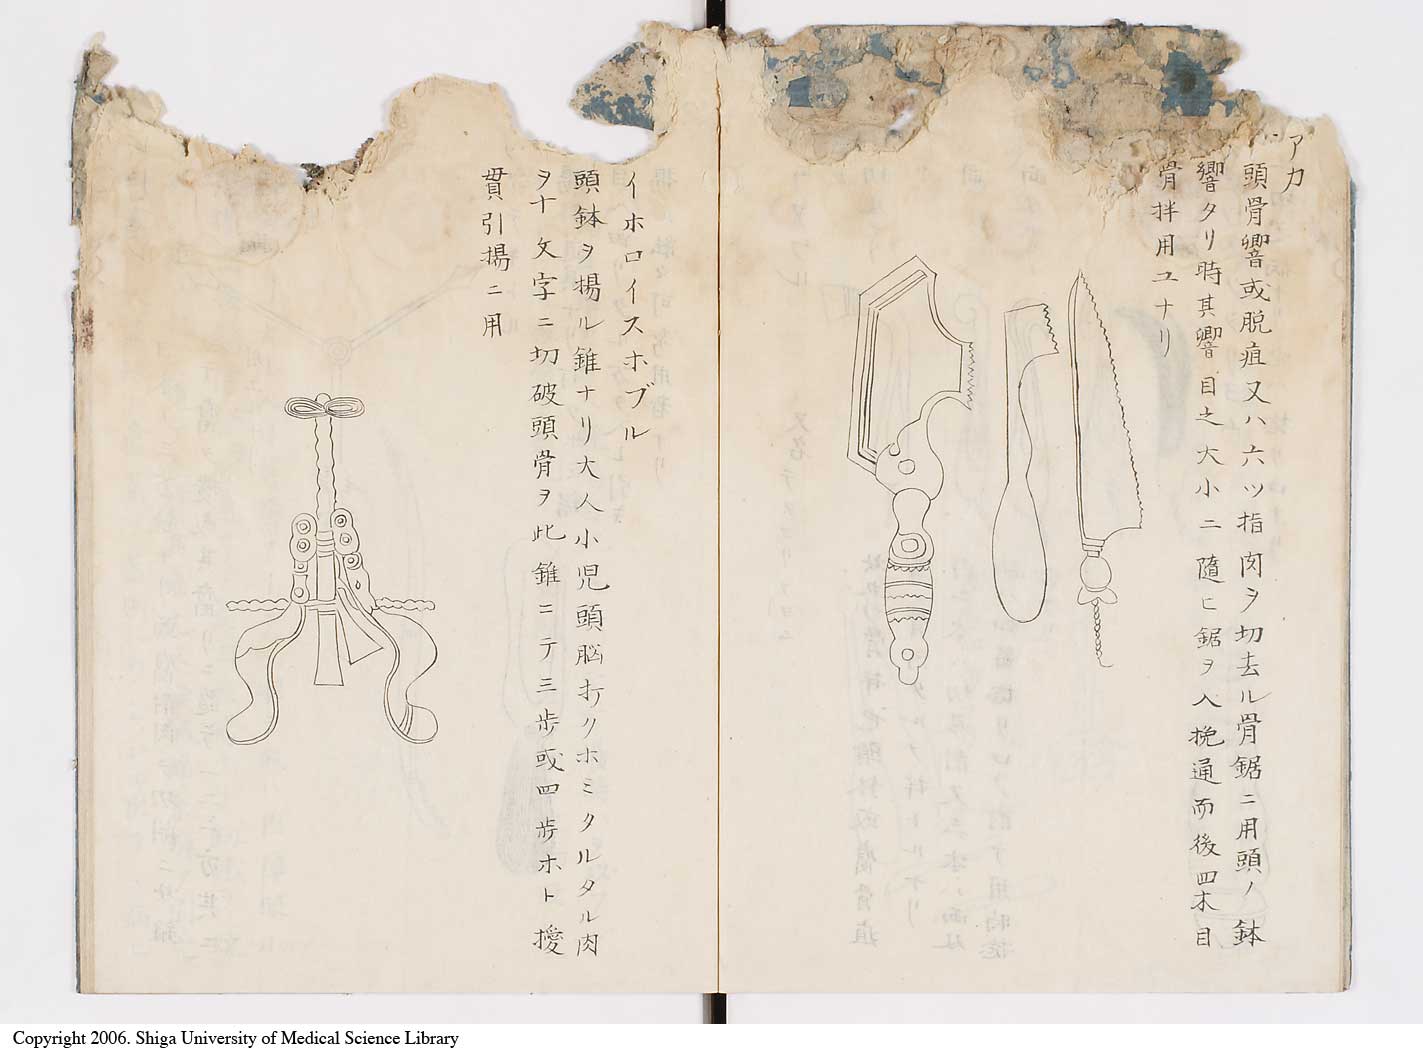 アカ
頭骨響或脱疽又ハ六ツ指肉ヲ切去ル骨鋸ニ用頭ノ鉢
響タリ時其響目之大小ニ随ヒ鋸ヲ入挽通而後四木目
骨拌用ユナリ
イホロイスホブル
頭鉢ヲ揚ル錐ナリ大人小児頭脳折リホミクルタル肉
ヲ十文字ニ切破頭骨ヲ此錐ニテ三歩或四歩ホト
貫引揚ニ用
Copyright 2006. Shiga University of Medical Science Library